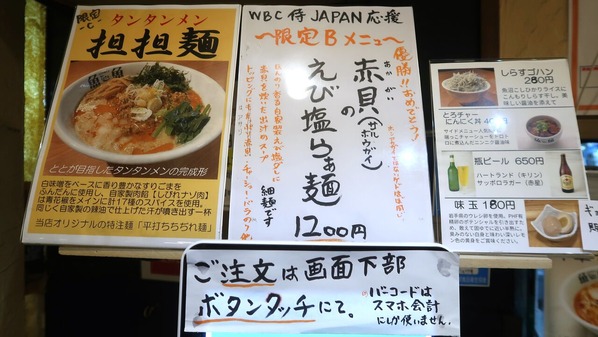 限定
-C-
タンタンメン
担担麺
ととが目指したタンタンメンの完成形
白味噌をベースに香り豊かなすりごまを
ふんだんに使用し、自家製肉餡【しびれナゾ肉】
は青花椒をメインに計17種のスパイスを使用。
同じく自家製の辣油で仕上げた汗が噴き出す一杯
当店オリジナルの特注麺「平打ちちぢれ麺」
WBC 侍 JAPAN 応援
〜限定Bメニュー〜
優勝!!おめでとう!
あかがい
赤貝(サルボウガイ)
の
えび塩らぁ麺
細麺です
1200円
しらすゴハン
280円
魚沼こしひかりライスに
こんもりしらす干し。美
味しい醤油を添えて
とろチャー
にんにく丼
サイドメニュー人気
瓶ビール 650円
ハートランド(キリン)
サッポロラガー(赤星)
味玉 180円
ご注文は画面下部
ボタンタッチにて。
※バーコードは
スマホ会計
にしか使いません。